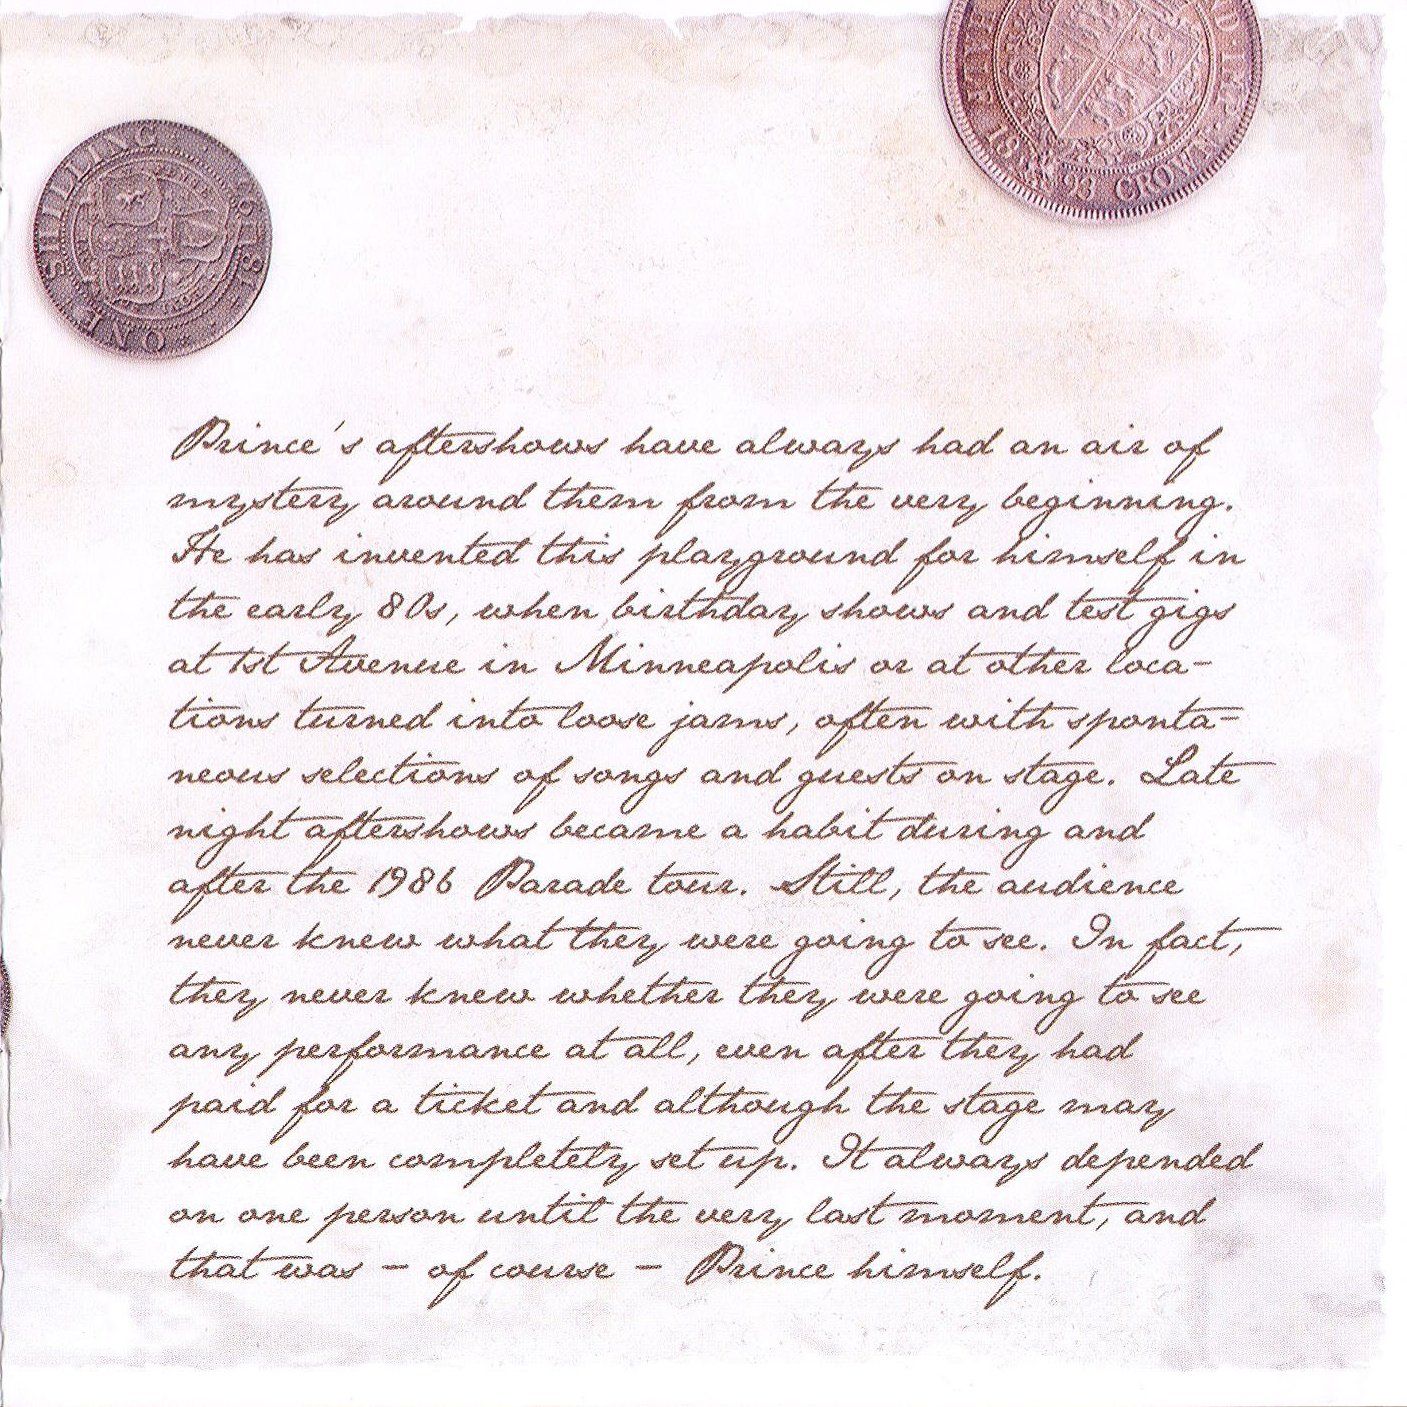 ONE SHILLING
CROWN
Prince's aftershows have always had an air of
mystery around them from the very beginning.
He has invented this playground for himself in
the early 80s, when birthday shows and test gigs
at 1st Avenue in Minneapolis or at other loca-
tions turned into loose jams, often with sponta-
neous selections of songs and guests on stage. Late
night aftershows became a habit during and
after the 1986 Parade tour. Still, the audience
never knew what they were going to see. In fact,
they never knew whether they were going to see
any performance at all, even after they had
paid for a ticket and although the stage may
have been completely set up. It always depended
on one person until the very last moment, and
that was - of course - Prince himself.